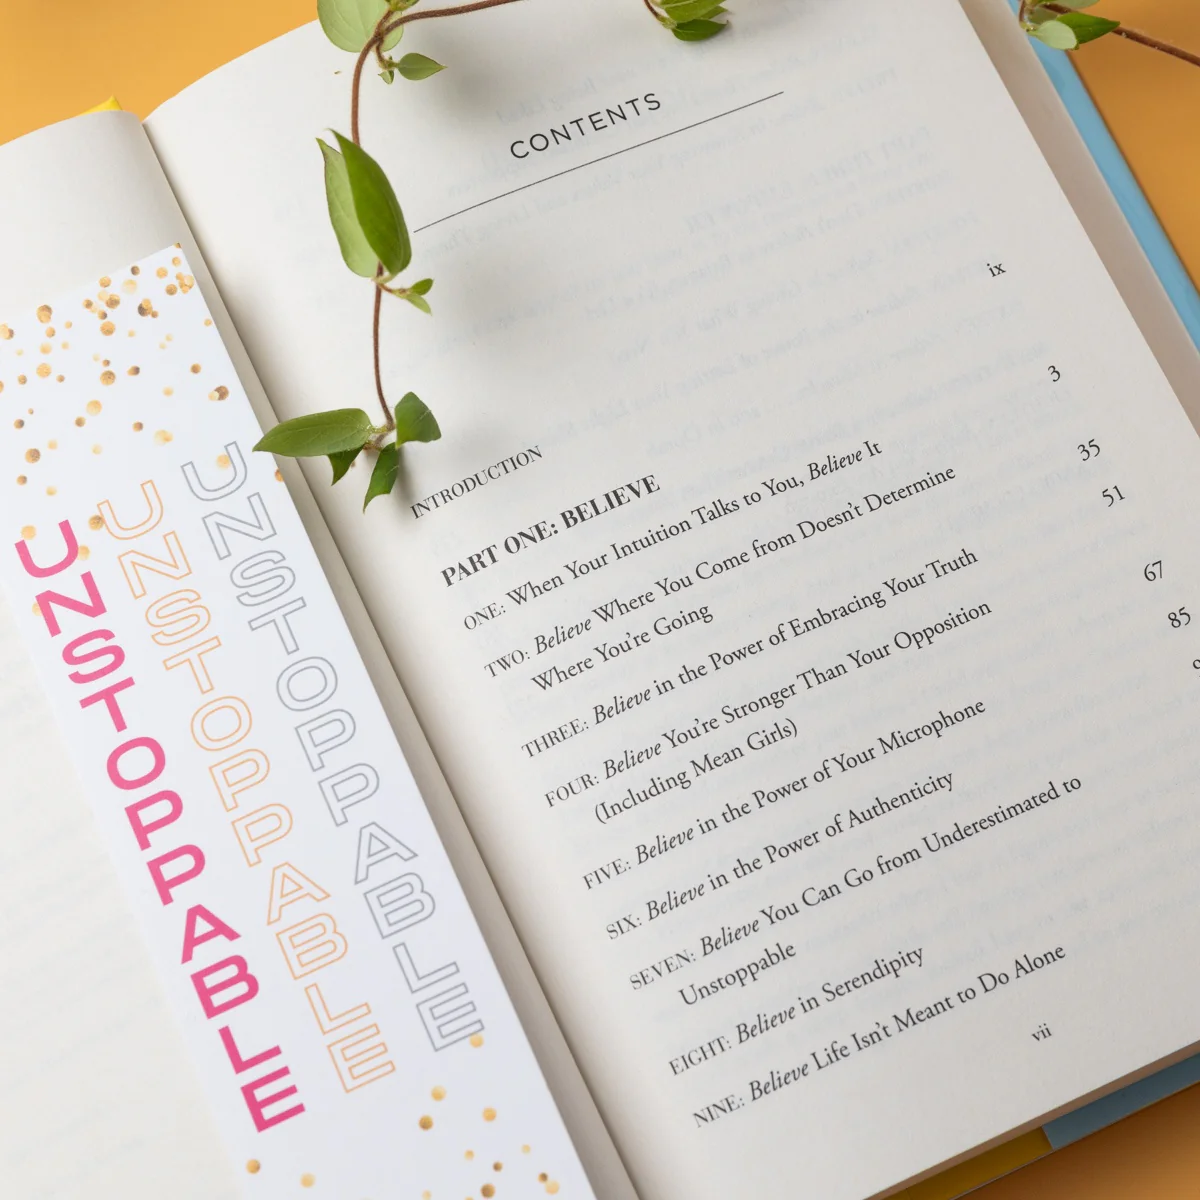 UNSTOPPABLE
UNSTOPPABLE
UNSTOPPABLE
CONTENTS
INTRODUCTION ix
PART ONE: BELIEVE
ONE: When Your Intuition Talks to You, Believe It 3
TWO: Believe Where You Come from Doesn't Determine
Where You're Going 35
THREE: Believe in the Power of Embracing Your Truth 51
FOUR: Believe You're Stronger Than Your Opposition
(Including Mean Girls) 67
FIVE: Believe in the Power of Your Microphone 85
SIX: Believe in the Power of Authenticity
SEVEN: Believe You Can Go from Underestimated to
Unstoppable
EIGHT: Believe in Serendipity
NINE: Believe Life Isn't Meant to Do Alone
vii